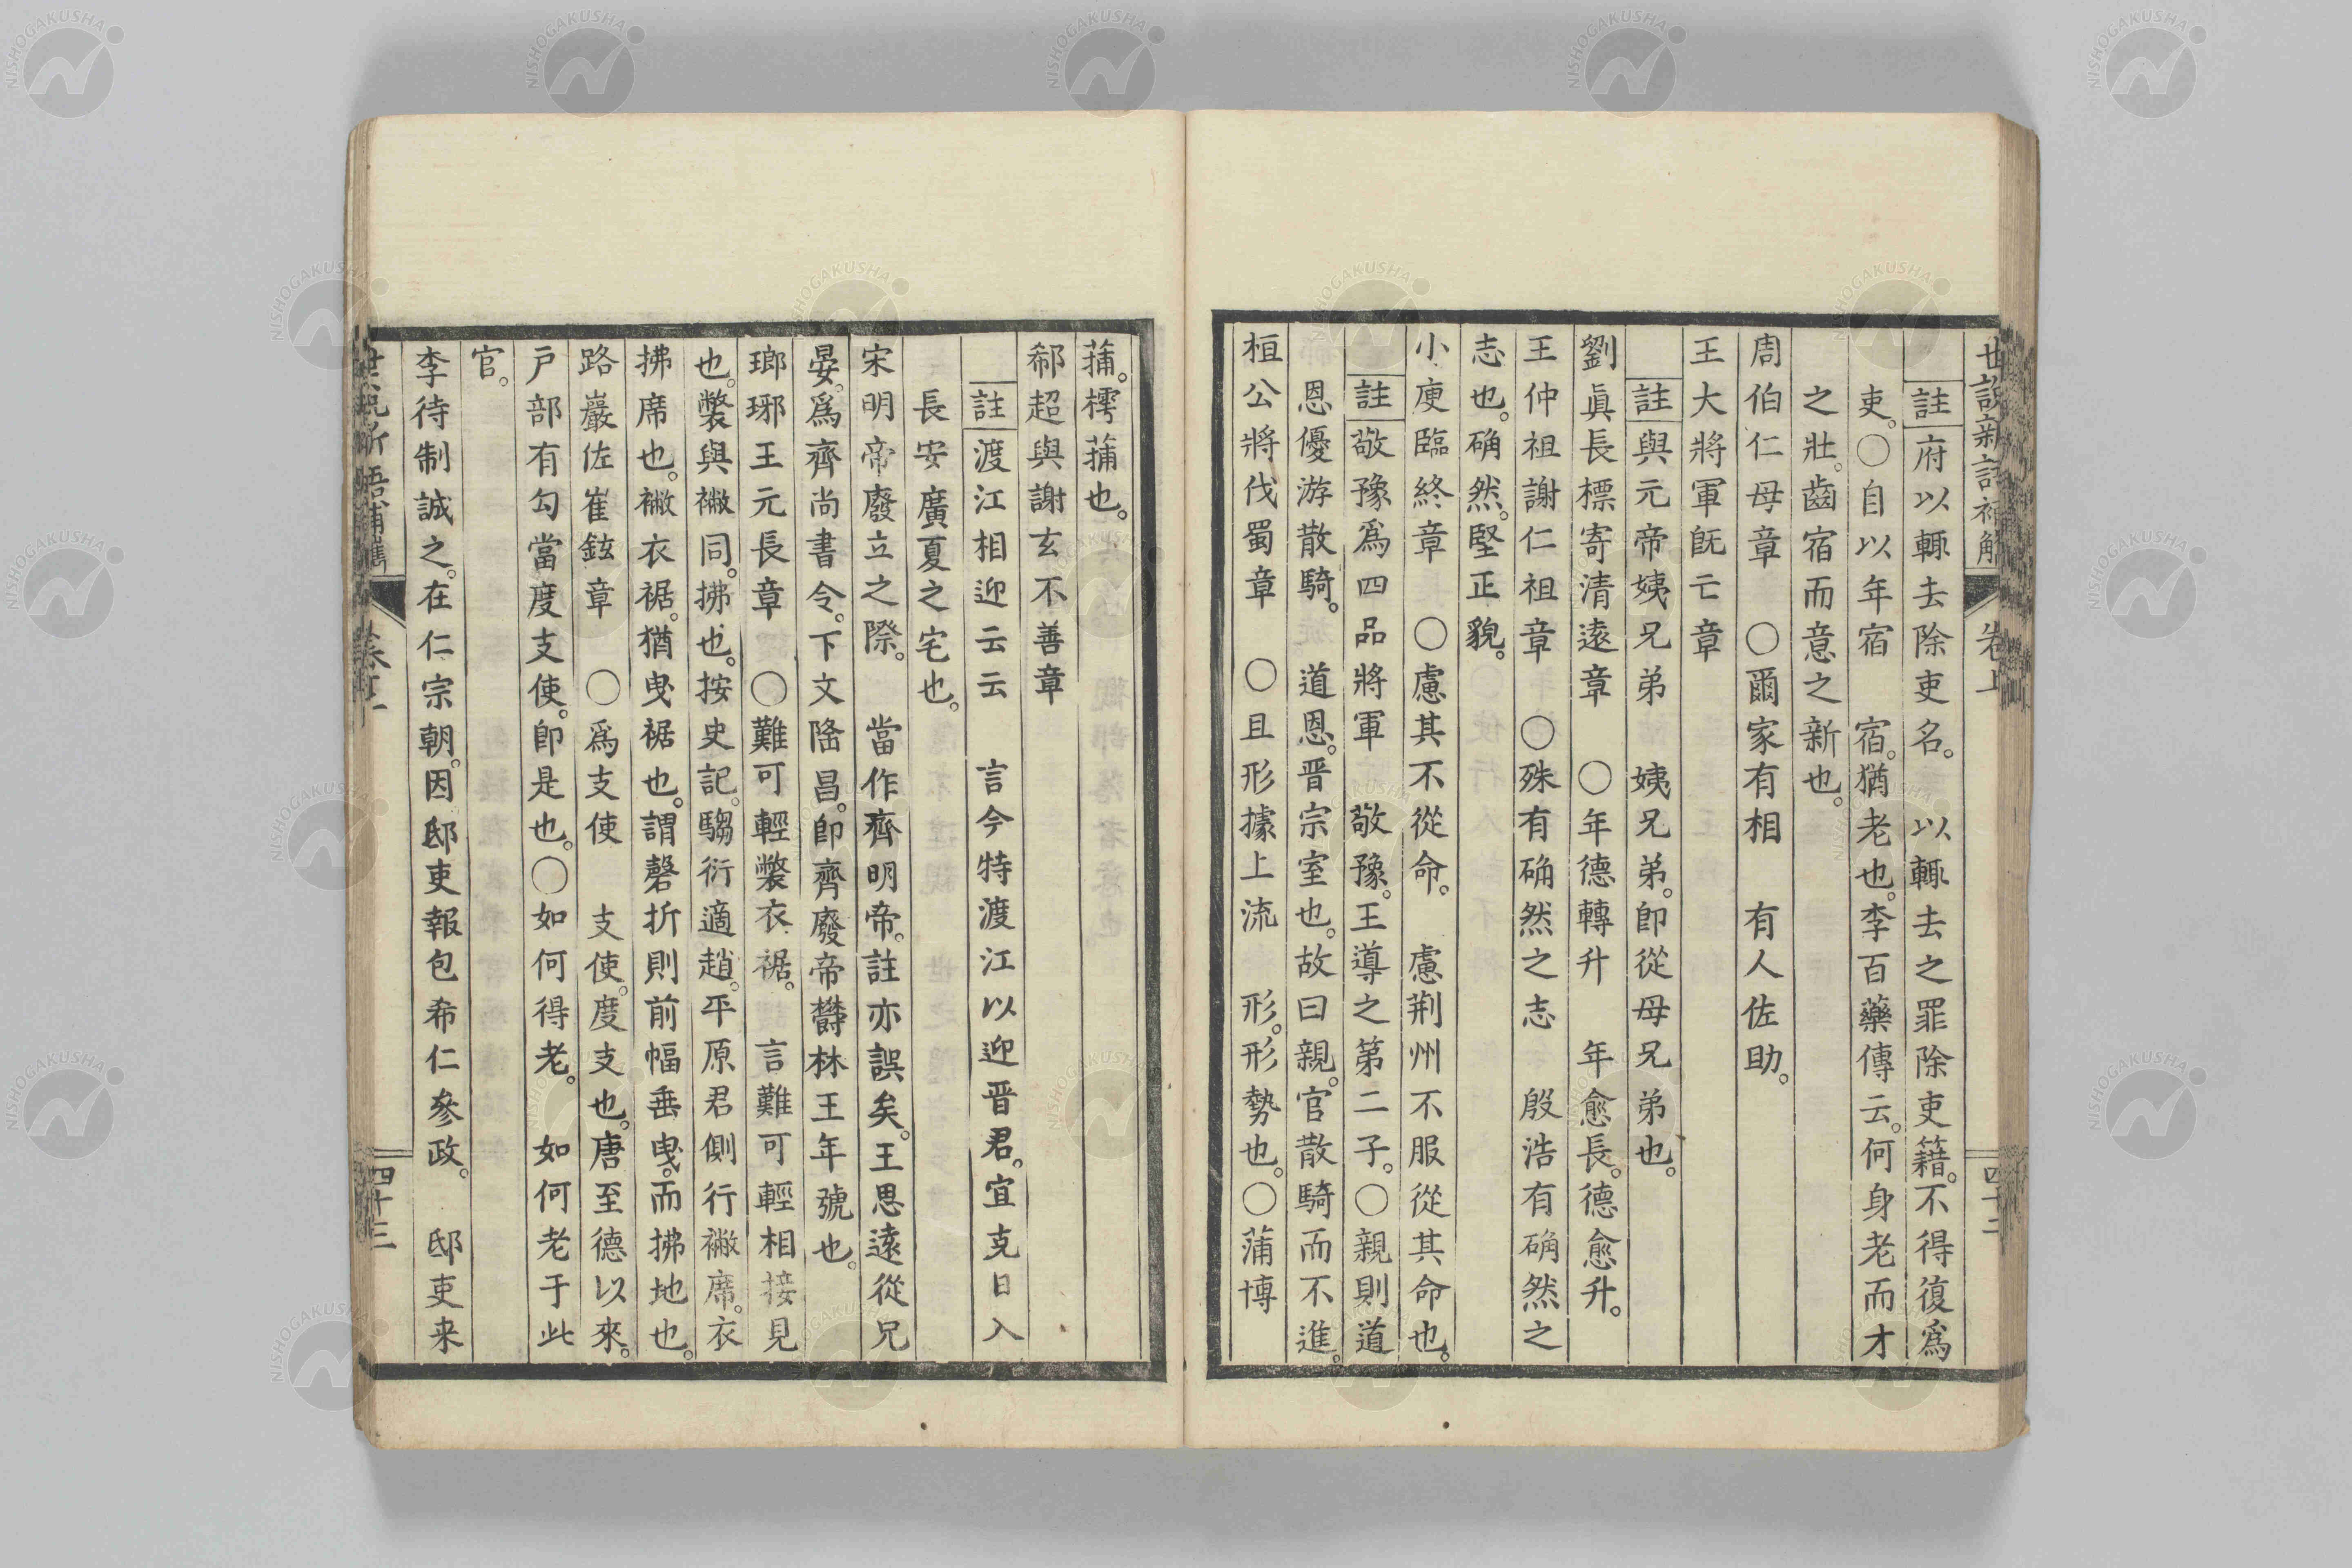 世說新語補觿 卷上 四十二
註 府以輒去除吏名。 以輒去之罪除吏籍。不得復爲
吏。○自以年宿 宿。猶老也。李百藥傳云。何身老而才
之壯。齒宿而意之新也。
周伯仁母章 ○爾家有相 有人佐助。
王大將軍既亡章
註 與元帝姨兄弟 姨兄弟。卽從母兄弟也。
劉眞長標寄清遠章 ○年德轉升 年愈長。德愈升。
王仲祖謝仁祖章 ○殊有确然之志 殷浩有确然之
志也。确然。堅正貌。
小庾臨終章 ○慮其不從命。 慮荆州不服從其命也。
註 敬豫爲四品將軍 敬豫。王導之第二子。○親則道
恩優游散騎。 道恩。晋宗室也。故曰親。官散騎而不進。
桓公將伐蜀章 ○且形據上流 形。形勢也。○蒲博
蒱。樗蒱也。
郗超與謝玄不善章
註 渡江相迎云云 言今特渡江以迎晋君。宜克日入
長安廣夏之宅也。
宋明帝廢立之際。 當作齊明帝。註亦誤矣。王思遠從兄
晏。爲齊尚書令。下文隆昌。卽齊廢帝欝林王年號也。
瑯琊王元長章 ○難可輕襒衣裾。 言難可輕相接見
也。襒與襒同。拂也。按史記。騶衍適趙。平原君側行襒席。衣
拂席也。襒衣裾。猶曳裾也。謂磬折則前幅垂曳。而拂地也。
路巖佐崔鉉章 ○爲支使 支使。度支也。唐至德以來。
戶部有勾當度支使。卽是也。○如何得老。 如何老于此
官。
李待制誠之。在仁宗朝。因邸吏報包希仁參政。 邸吏来
世說新語補觿 卷上 四十三